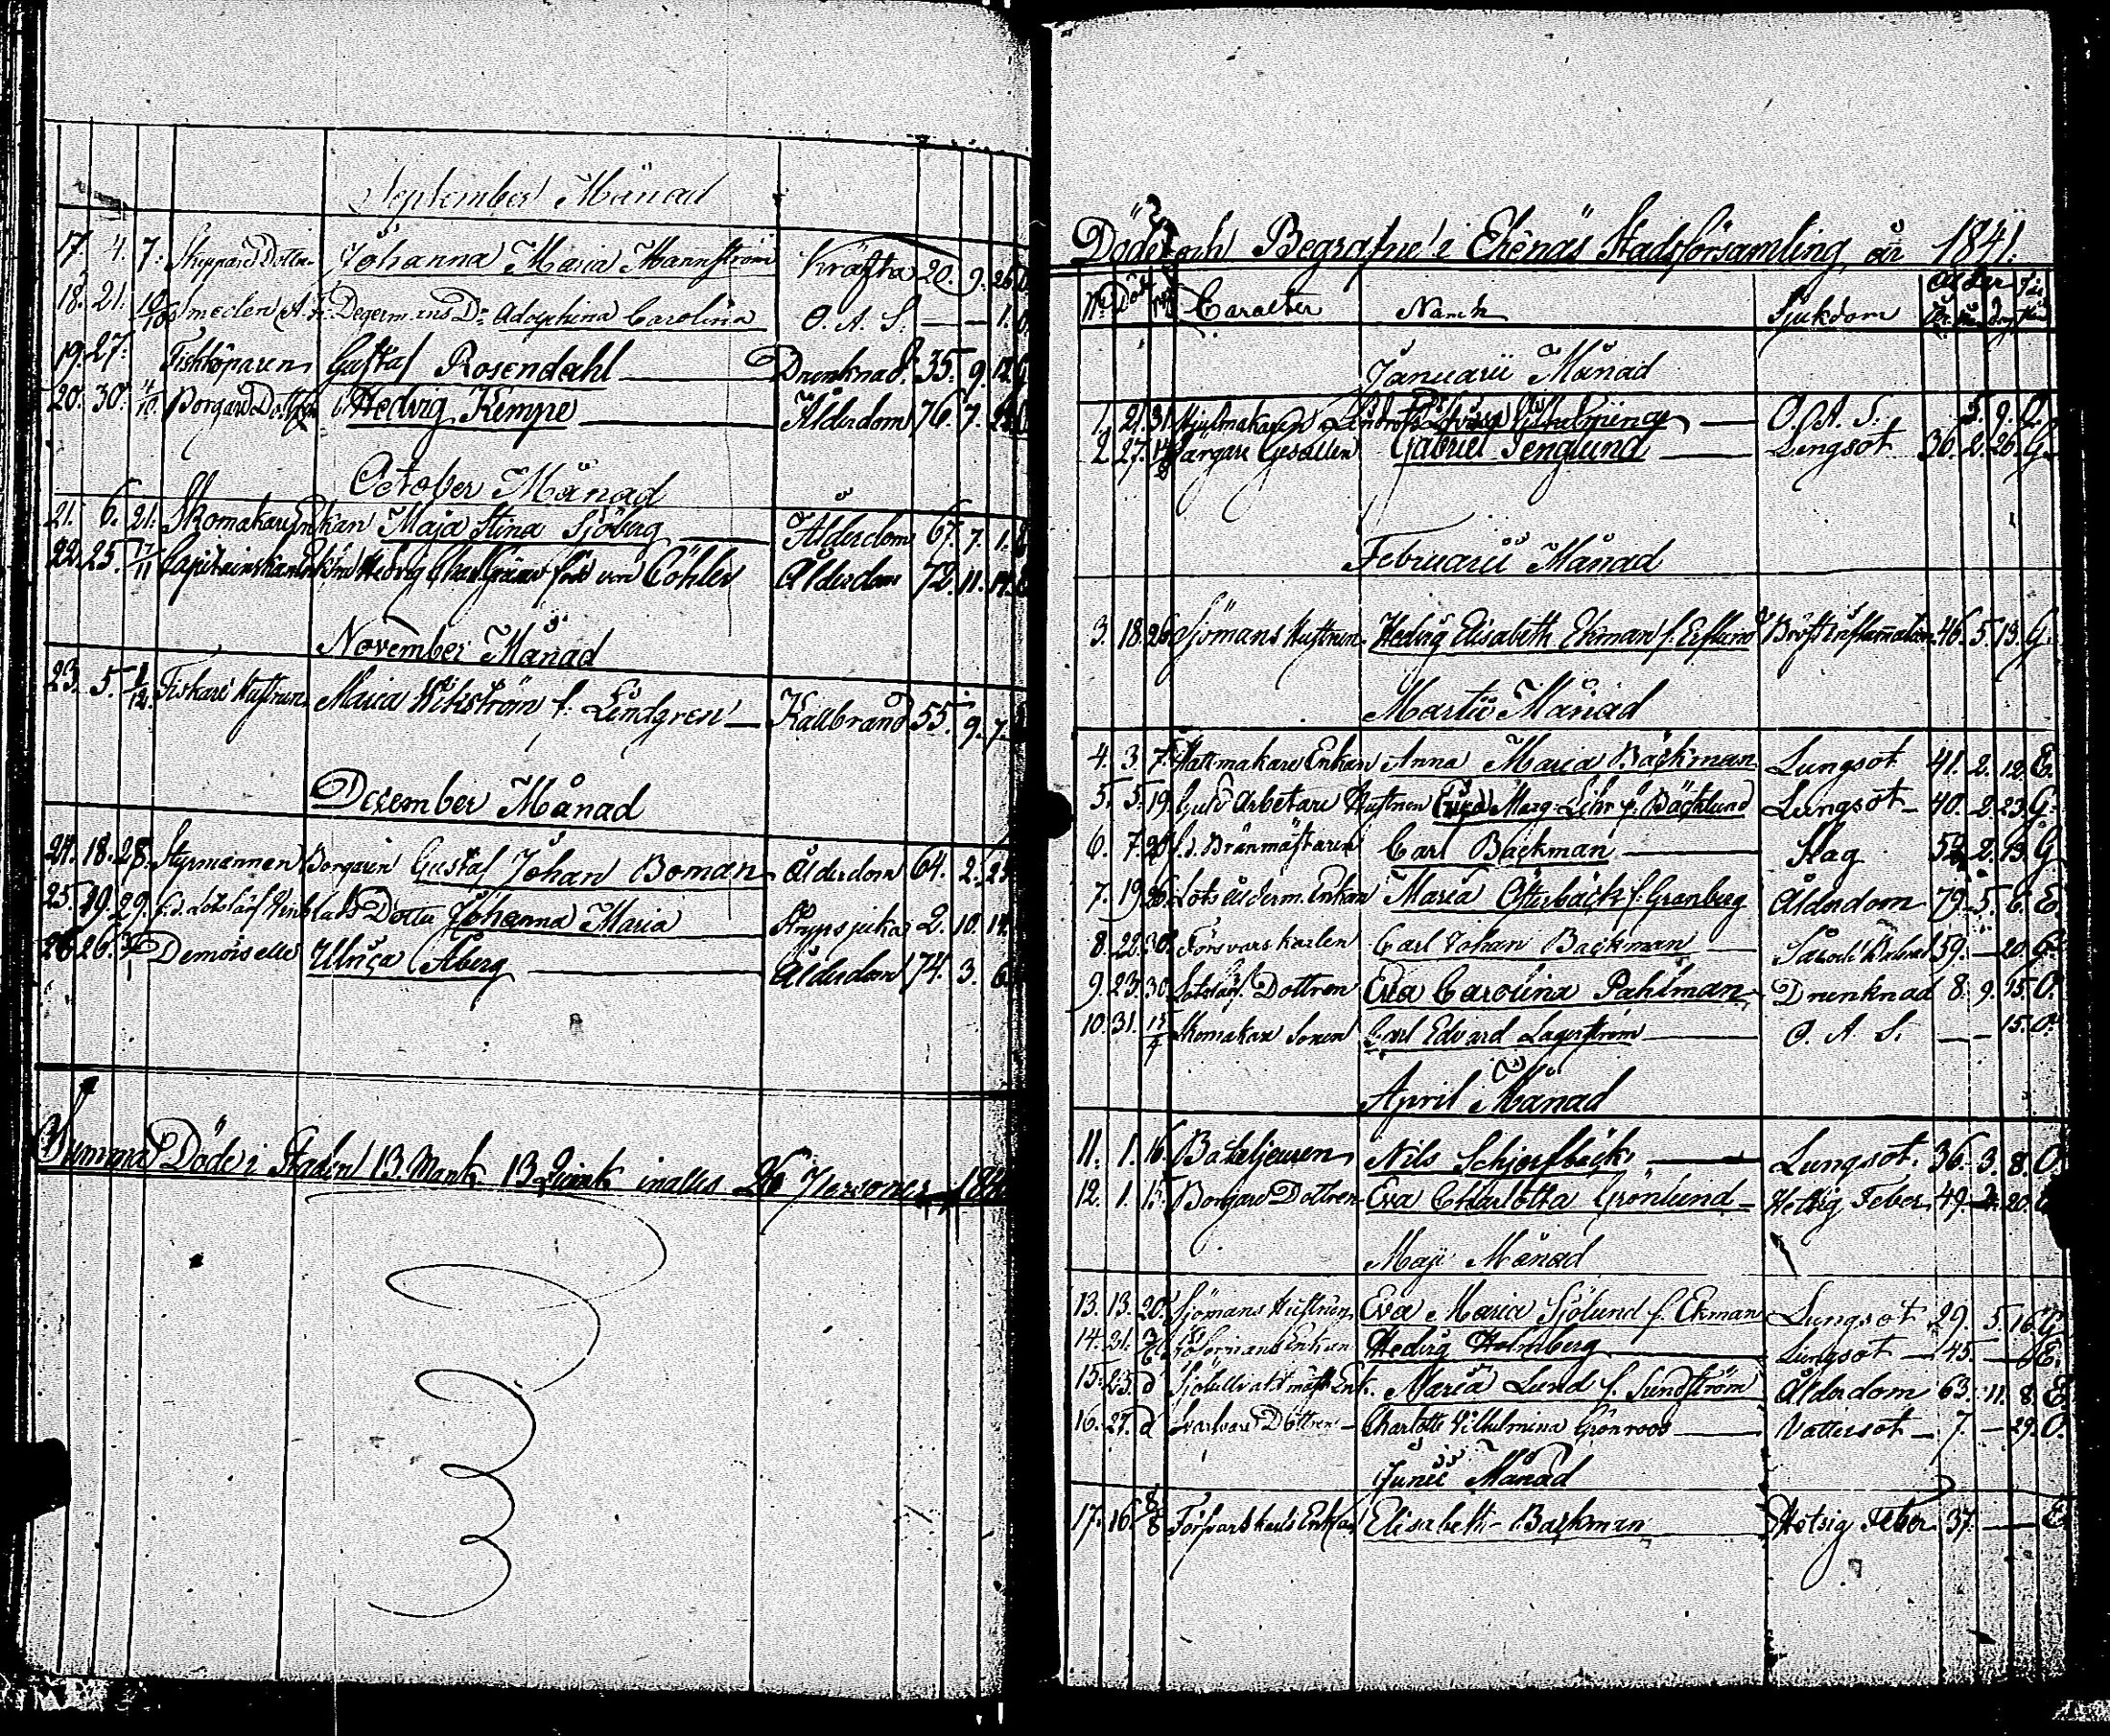 September Månad
17. 4. 7. Skeppare Dottren Johanna Maria Mannström Kräfta 20. 9. 26
18. 21. Smeden Degermans Dr Adolphina Carolina O. A. S. — — 1.
19. 27. Fiskköparen Gustaf Rosendahl Drunknad. 35. 9. 12. G
20. 30. 4/10. Borgare Dottren Hedvig Kempe Ålderdom 76. 7.
October Månad
21. 6. 21. Skomakare Enkan Maja Stina Sjöberg Ålderdom 67. 7. 1.
22. 25. 1/11 Capitainskan Enkan Hedvig Char. född von Cöhler Ålderdom 72. 11. 14.
November Månad
23. 5. 1/12. Fiskare Hustrun Maria Wikström f. Lindgren Kallbrand 55. 9. 7.
December Månad
24. 18. 28. Styrmannen Borgaren Gustaf Johan Boman Ålderdom 64. 2. 25
25. 19. 29. Dotter Johanna Maria Strypsjuka 2. 10. 14.
26 26. Demoiselle Ulrica Åberg Ålderdom 74. 3. 6
Summa Döde i Staden 13. Mank. 13 Qvink. inalles 26 Personer 184
Döde och Begrafne i Ekenäs Stadsförsamling, år 1841.
No Död Caracter Namn Sjukdom Ålder
Januarii Månad
1. 21. 31. Hjulmakaren O. A. S. 5. 9. O.
2. 27. Gargare Gesällen Gabriel Tenglund Lungsot 36. 2. 26. G.
Februarii Månad
3. 18. 26. Sjömans Hustrun Hedvig Elisabeth Ekman f. Eklund Bröst Inflammation 46. 5. 13. G.
Martii Månad
4. 3. 7. Hattmakare Enkan Anna Maria Bäckman Lungsot 41. 2. 12. E.
5. 5. 19. Arbetare Hustrun Marg. f. Bäcklund Lungsot 40. 2. 23. G.
6. 7. 20. f.d. Bränmästaren Carl Bäckman Slag 2. 13. G
7. 19. 26. Lots Ålderm. Enkan Maria Österbäck f. Granberg Ålderdom 79. 5. 6. E.
8. 22. 30. Försvars karlen Carl Johan Backman 59. — 20. G.
9. 23. 30. Dottren Eva Carolina Pahlman Drunknad 8. 9. 15. O.
10. 31. 15/4 Skomakare Sonen Carl Edvard Lagerström O. A. S. — — 15. O.
April Månad
11. 1. 16. Nils Schjerfbäck Lungsot. 36. 3. 8. O.
12. 1. 15. Borgare Dottren Eva Charlotta Grönlund Hetsig Feber 49. 2. 20.
Maji Månad
13. 13. 20. Sjömans Hustrun Eva Maria Sjölund f. Ekman Lungsot 29. 5. 16. G.
14. 21. Enkan Hedvig Holmberg Lungsot — 45. — E.
15. 23. d Enk. Maria Lund f. Sundström Ålderdom 63. 11. 8. E.
16. 27. d Svarvare Dottren — Charlotta Vilhelmina Grönroos Vattersot — 7. — 29. O.
Junii Månad
17. 16. 8/8 Försvarskarls Enkan Elisabeth Backman Hetsig Feber 37. — E